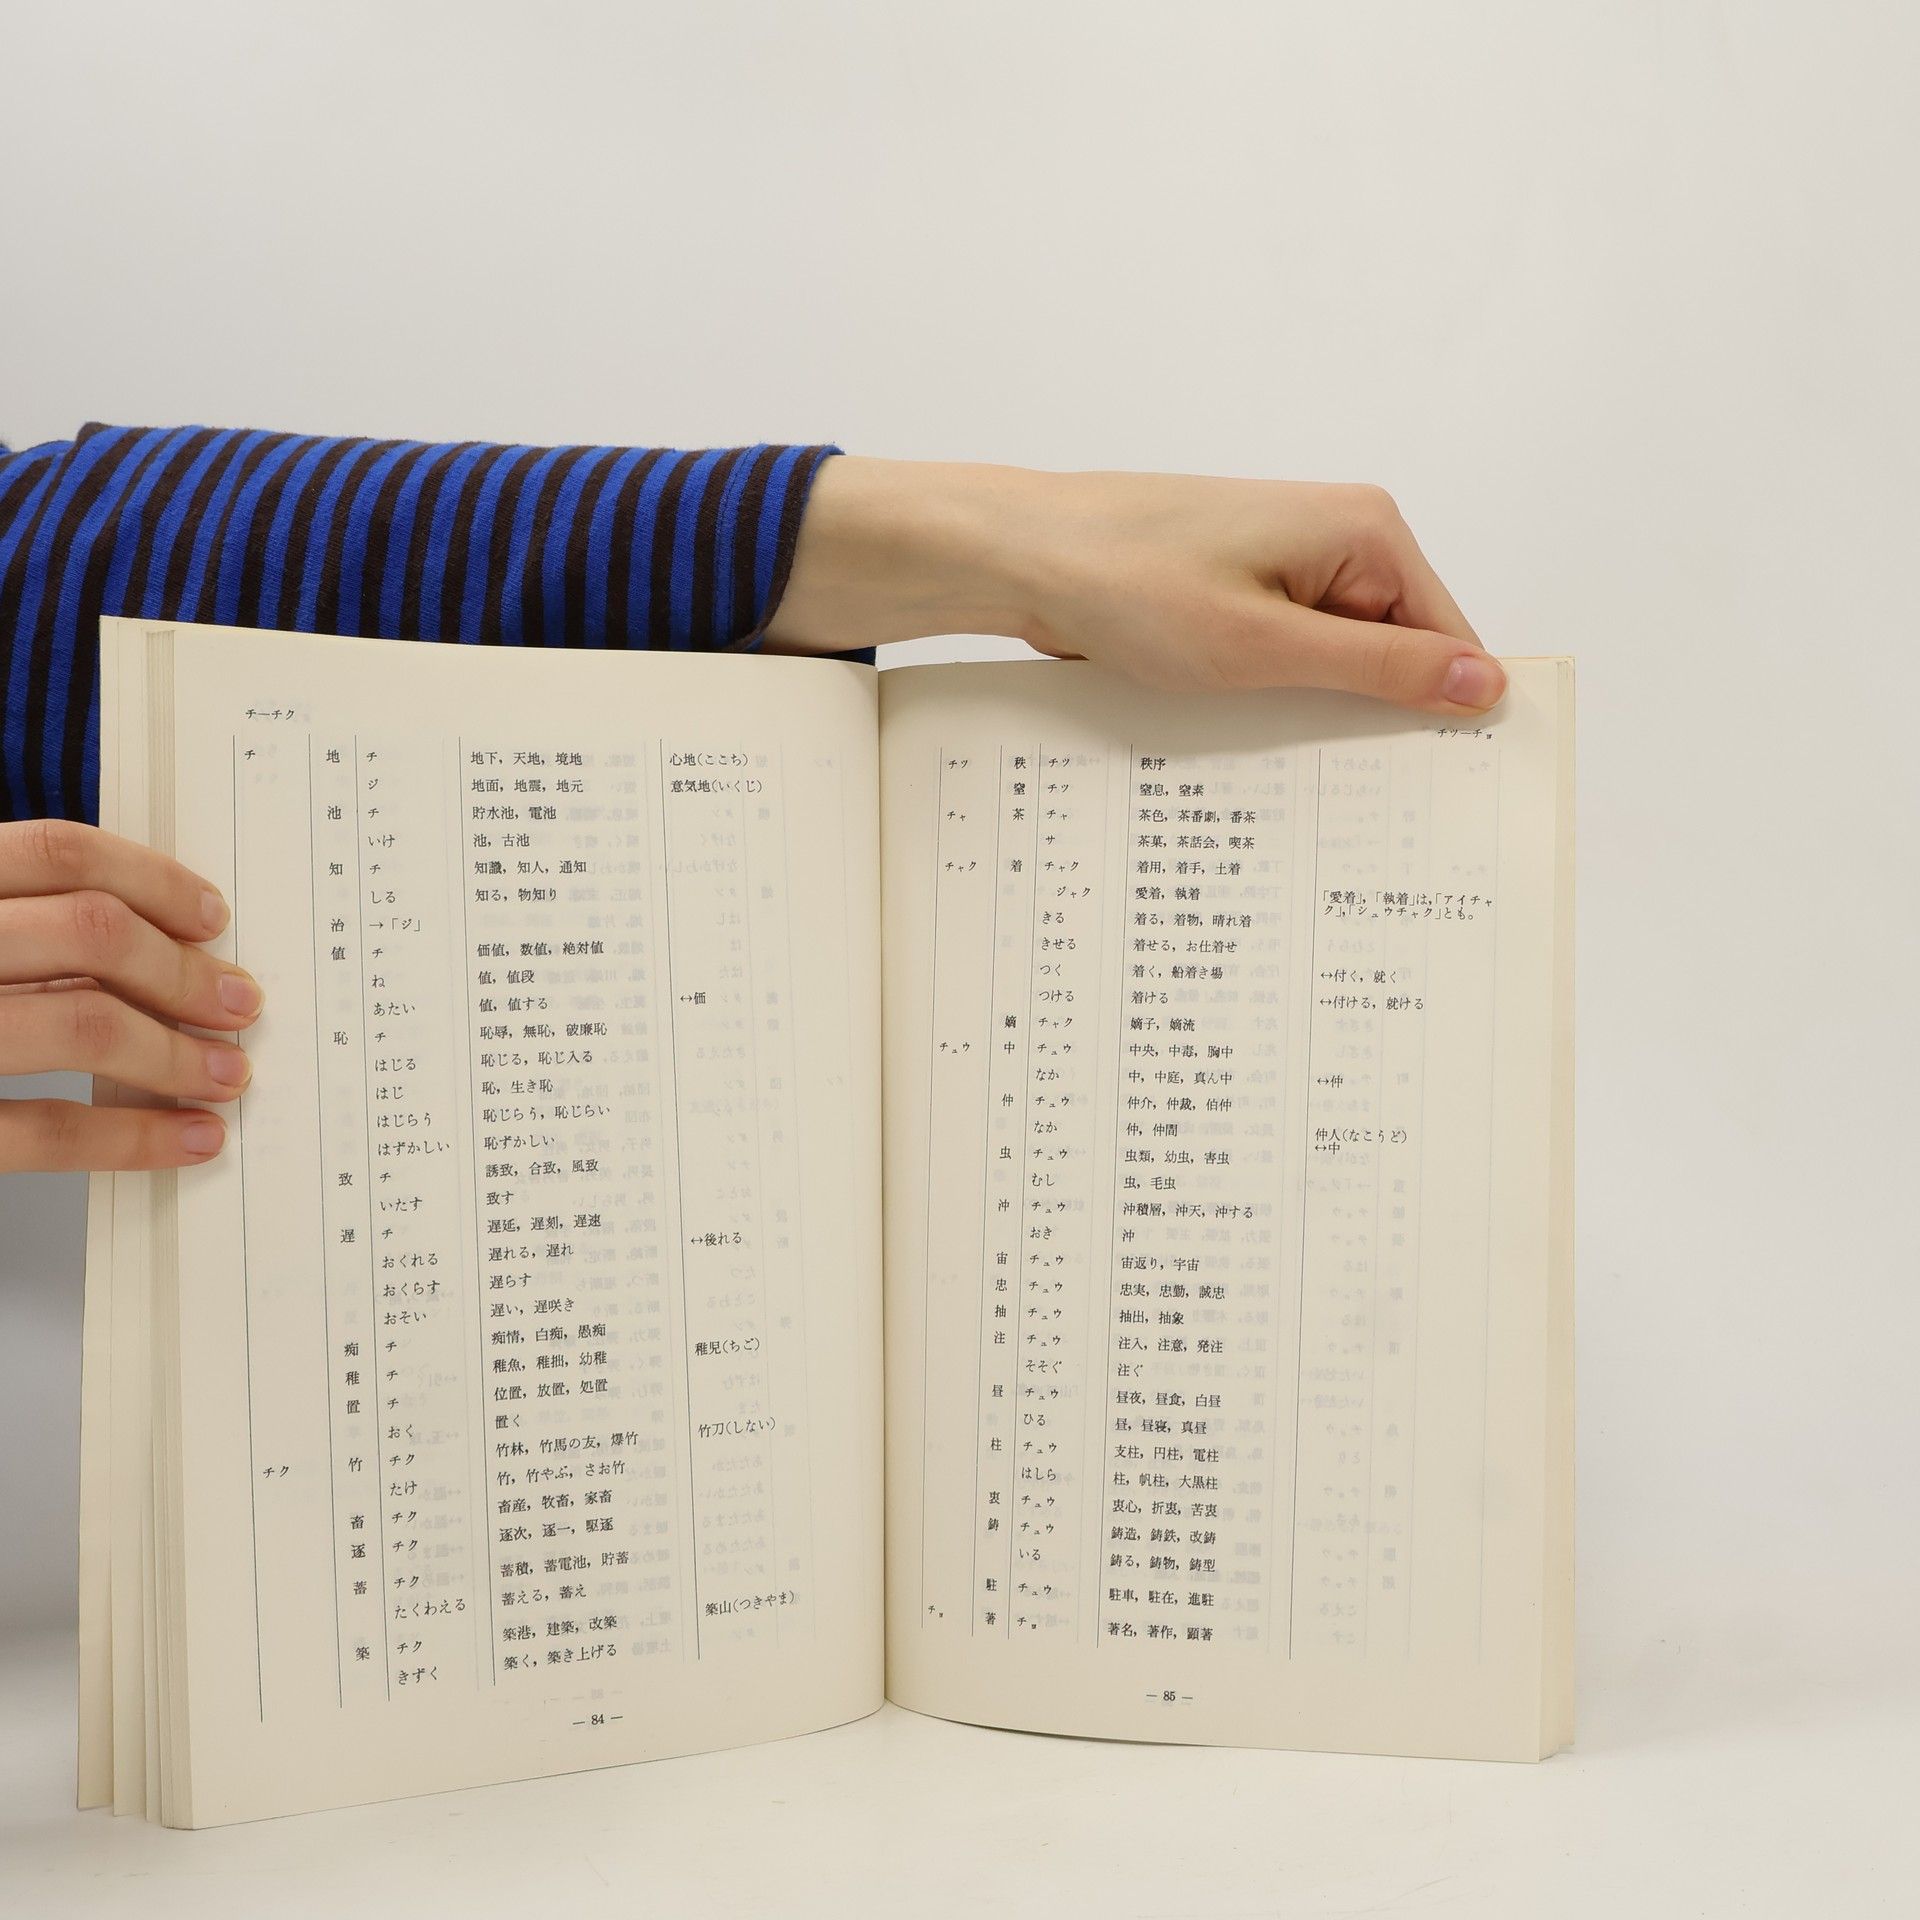 チ―チク
チ 地 チ 地下，天地，境地 心地(ここち)
ジ 地面，地震，地元 意気地(いくじ)
池 チ 貯水池，電池
いけ 池，古池
知 チ 知識，知人，通知
しる 知る，物知り
治 →「ジ」
値 チ 価値，数値，絶対値
ね 値，値段
あたい 値，値する ↔価
恥 チ 恥辱，無恥，破廉恥
はじる 恥じる，恥じ入る
はじ 恥，生き恥
はじらう 恥じらう，恥じらい
はずかしい 恥ずかしい
致 チ 誘致，合致，風致
いたす 致す
遅 チ 遅延，遅刻，遅速
おくれる 遅れる，遅れ ↔後れる
おくらす 遅らす
おそい 遅い，遅咲き
痴 チ 痴情，白痴，愚痴
稚 チ 稚魚，稚拙，幼稚 稚児(ちご)
置 チ 位置，放置，処置
おく 置く
チク 竹 チク 竹林，竹馬の友，爆竹 竹刀(しない)
たけ 竹，竹やぶ，さお竹
畜 チク 畜産，牧畜，家畜
逐 チク 逐次，逐一，駆逐
蓄 チク 蓄積，蓄電池，貯蓄
たくわえる 蓄える，蓄え
築 チク 築港，建築，改築 築山(つきやま)
きずく 築く，築き上げる
― 84 ―
チツ―チョ
チツ 秩 チツ 秩序
窒 チツ 窒息，窒素
チャ 茶 チャ 茶色，茶番劇，番茶
サ 茶菓，茶話会，喫茶
チャク 着 チャク 着用，着手，土着
ジャク 愛着，執着 「愛着」，「執着」は，「アイチャ
ク」，「シュウチャク」とも。
きる 着る，着物，晴れ着
きせる 着せる，お仕着せ
つく 着く，船着き場 ↔付く，就く
つける 着ける ↔付ける，就ける
嫡 チャク 嫡子，嫡流
チュウ 中 チュウ 中央，中毒，胸中
なか 中，中庭，真ん中 ↔仲
仲 チュウ 仲介，仲裁，伯仲
なか 仲，仲間 仲人(なこうど)
↔中
虫 チュウ 虫類，幼虫，害虫
むし 虫，毛虫
沖 チュウ 沖積層，沖天，沖する
おき 沖
宙 チュウ 宙返り，宇宙
忠 チュウ 忠実，忠勤，誠忠
抽 チュウ 抽出，抽象
注 チュウ 注入，注意，発注
そそぐ 注ぐ
昼 チュウ 昼夜，昼食，白昼
ひる 昼，昼寝，真昼
柱 チュウ 支柱，円柱，電柱
はしら 柱，帆柱，大黒柱
衷 チュウ 衷心，折衷，苦衷
鋳 チュウ 鋳造，鋳鉄，改鋳
いる 鋳る，鋳物，鋳型
駐 チュウ 駐車，駐在，進駐
チョ 著 チョ 著名，著作，顕著
― 85 ―